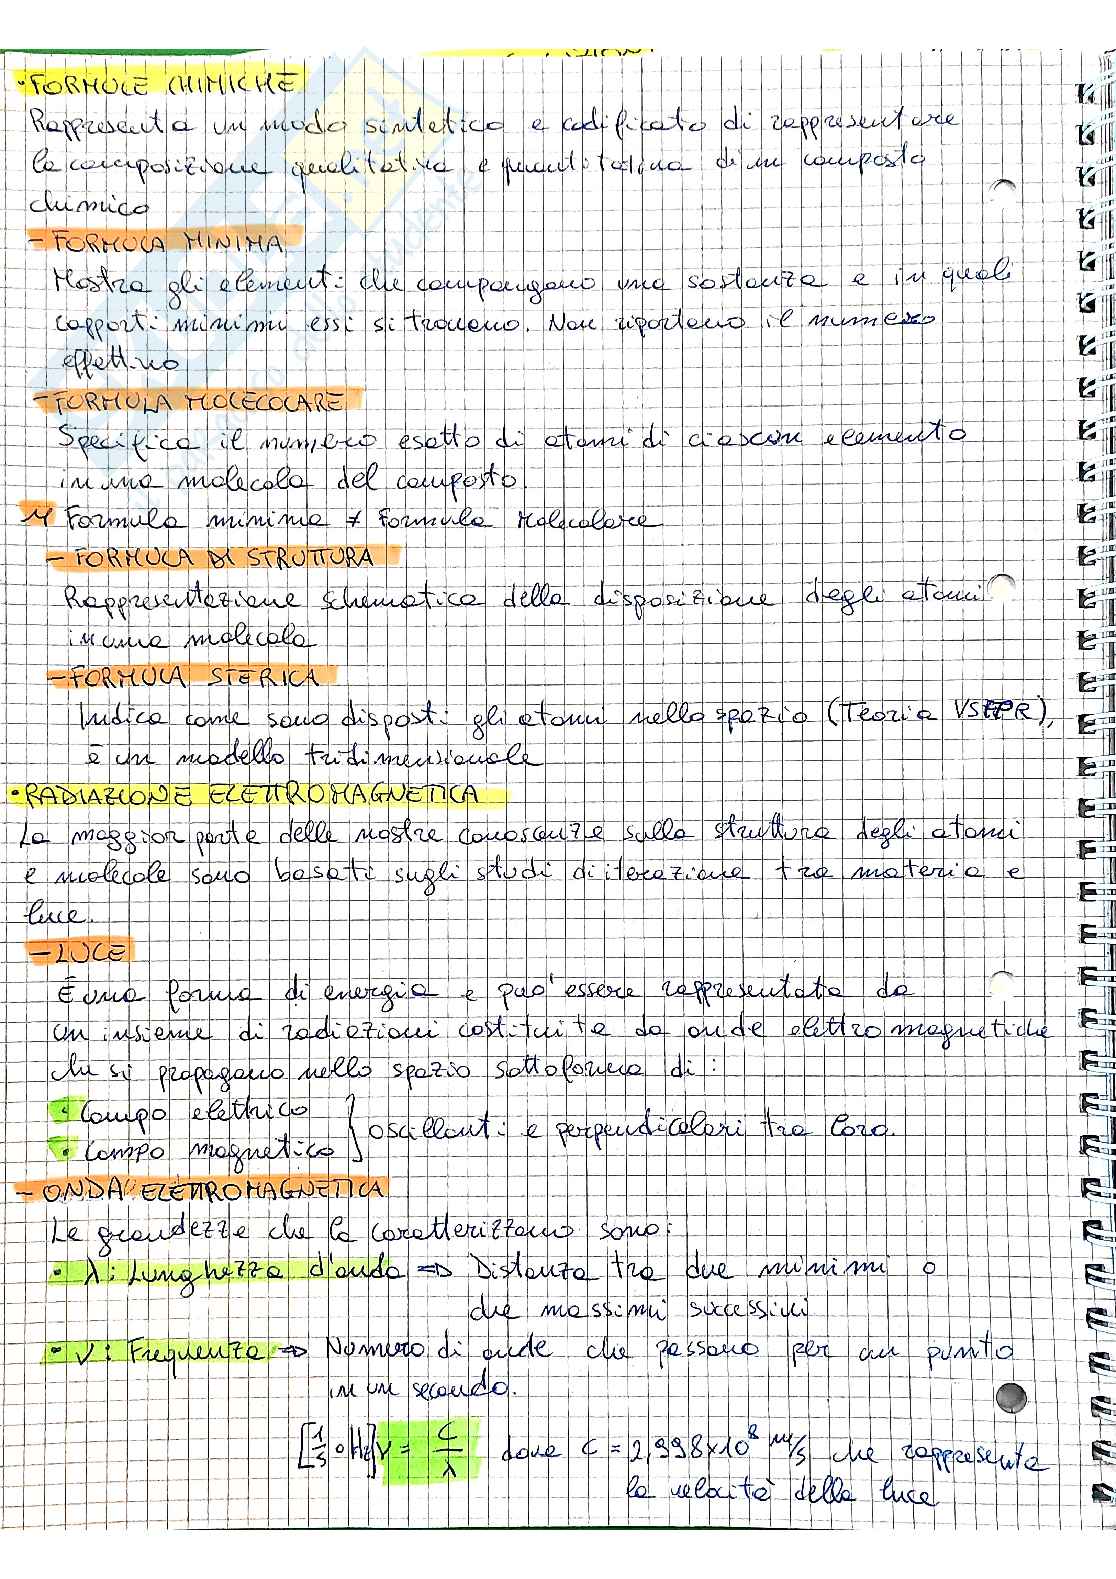 • FORMULE CHIMICHE
Rappresenta un modo sintetico e codificato di rappresentare
la composizione qualitativa e quantitativa di un composto
chimico
- FORMULA MINIMA
Mostra gli elementi che compongano una sostanza e in quali
rapporti minimi essi si trovano. Non riportano il numero
effettivo
- FORMULA MOLECOLARE
Specifica il numero esatto di atomi di ciascun elemento
in una molecola del composto
Formula minima ≠ Formula Molecolare
- FORMULA DI STRUTTURA
Rappresentazione schematica della disposizione degli atomi
in una molecola
- FORMULA STERICA
Indica come sono disposti gli atomi nello spazio (Teoria VSEPR),
è un modello tridimensionale
• RADIAZIONE ELETTROMAGNETICA
La maggior parte delle nostre conoscenze sulla struttura degli atomi
e molecole sono basati sugli studi di iterazione tra materia e
luce.
- LUCE
È una forma di energia e può essere rappresentata da
un insieme di radiazioni costituite da onde elettromagnetiche
che si propagano nello spazio sottoforma di:
• Campo elettrico
• Campo magnetico } oscillanti e perpendicolari tra loro.
- ONDA ELETTROMAGNETICA
Le grandezze che la caratterizzano sono:
• λ: Lunghezza d'onda ⇒ Distanza tra due minimi o
due massimi successivi
• ν: Frequenza ⇒ Numero di onde che passano per un punto
in un secondo.
[1/s o Hz] ν = c/λ dove c = 2,998×10⁸ m/s che rappresenta
la velocità della luce